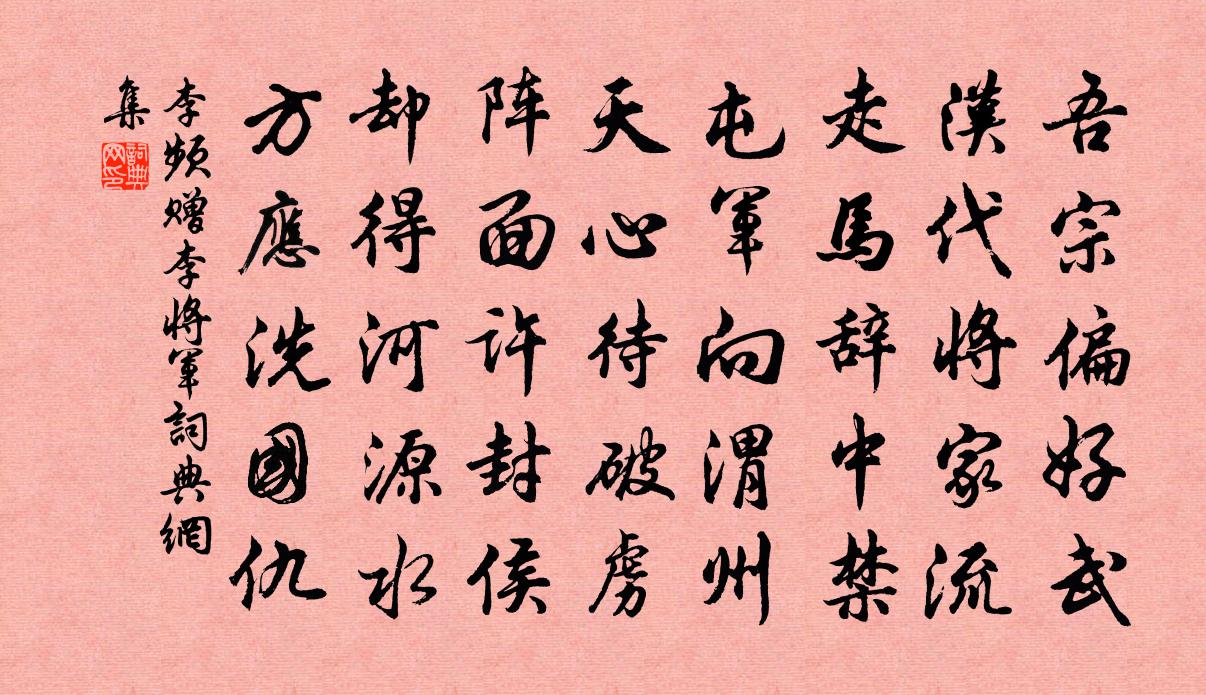 吾宗偏好武
漢代將家流
走馬辞中禁
屯軍向渭州
天心待破虜
阵面許封侯
却得河源水
方應洗國仇
李頻赠李將軍詞典網
集
詞典
网印